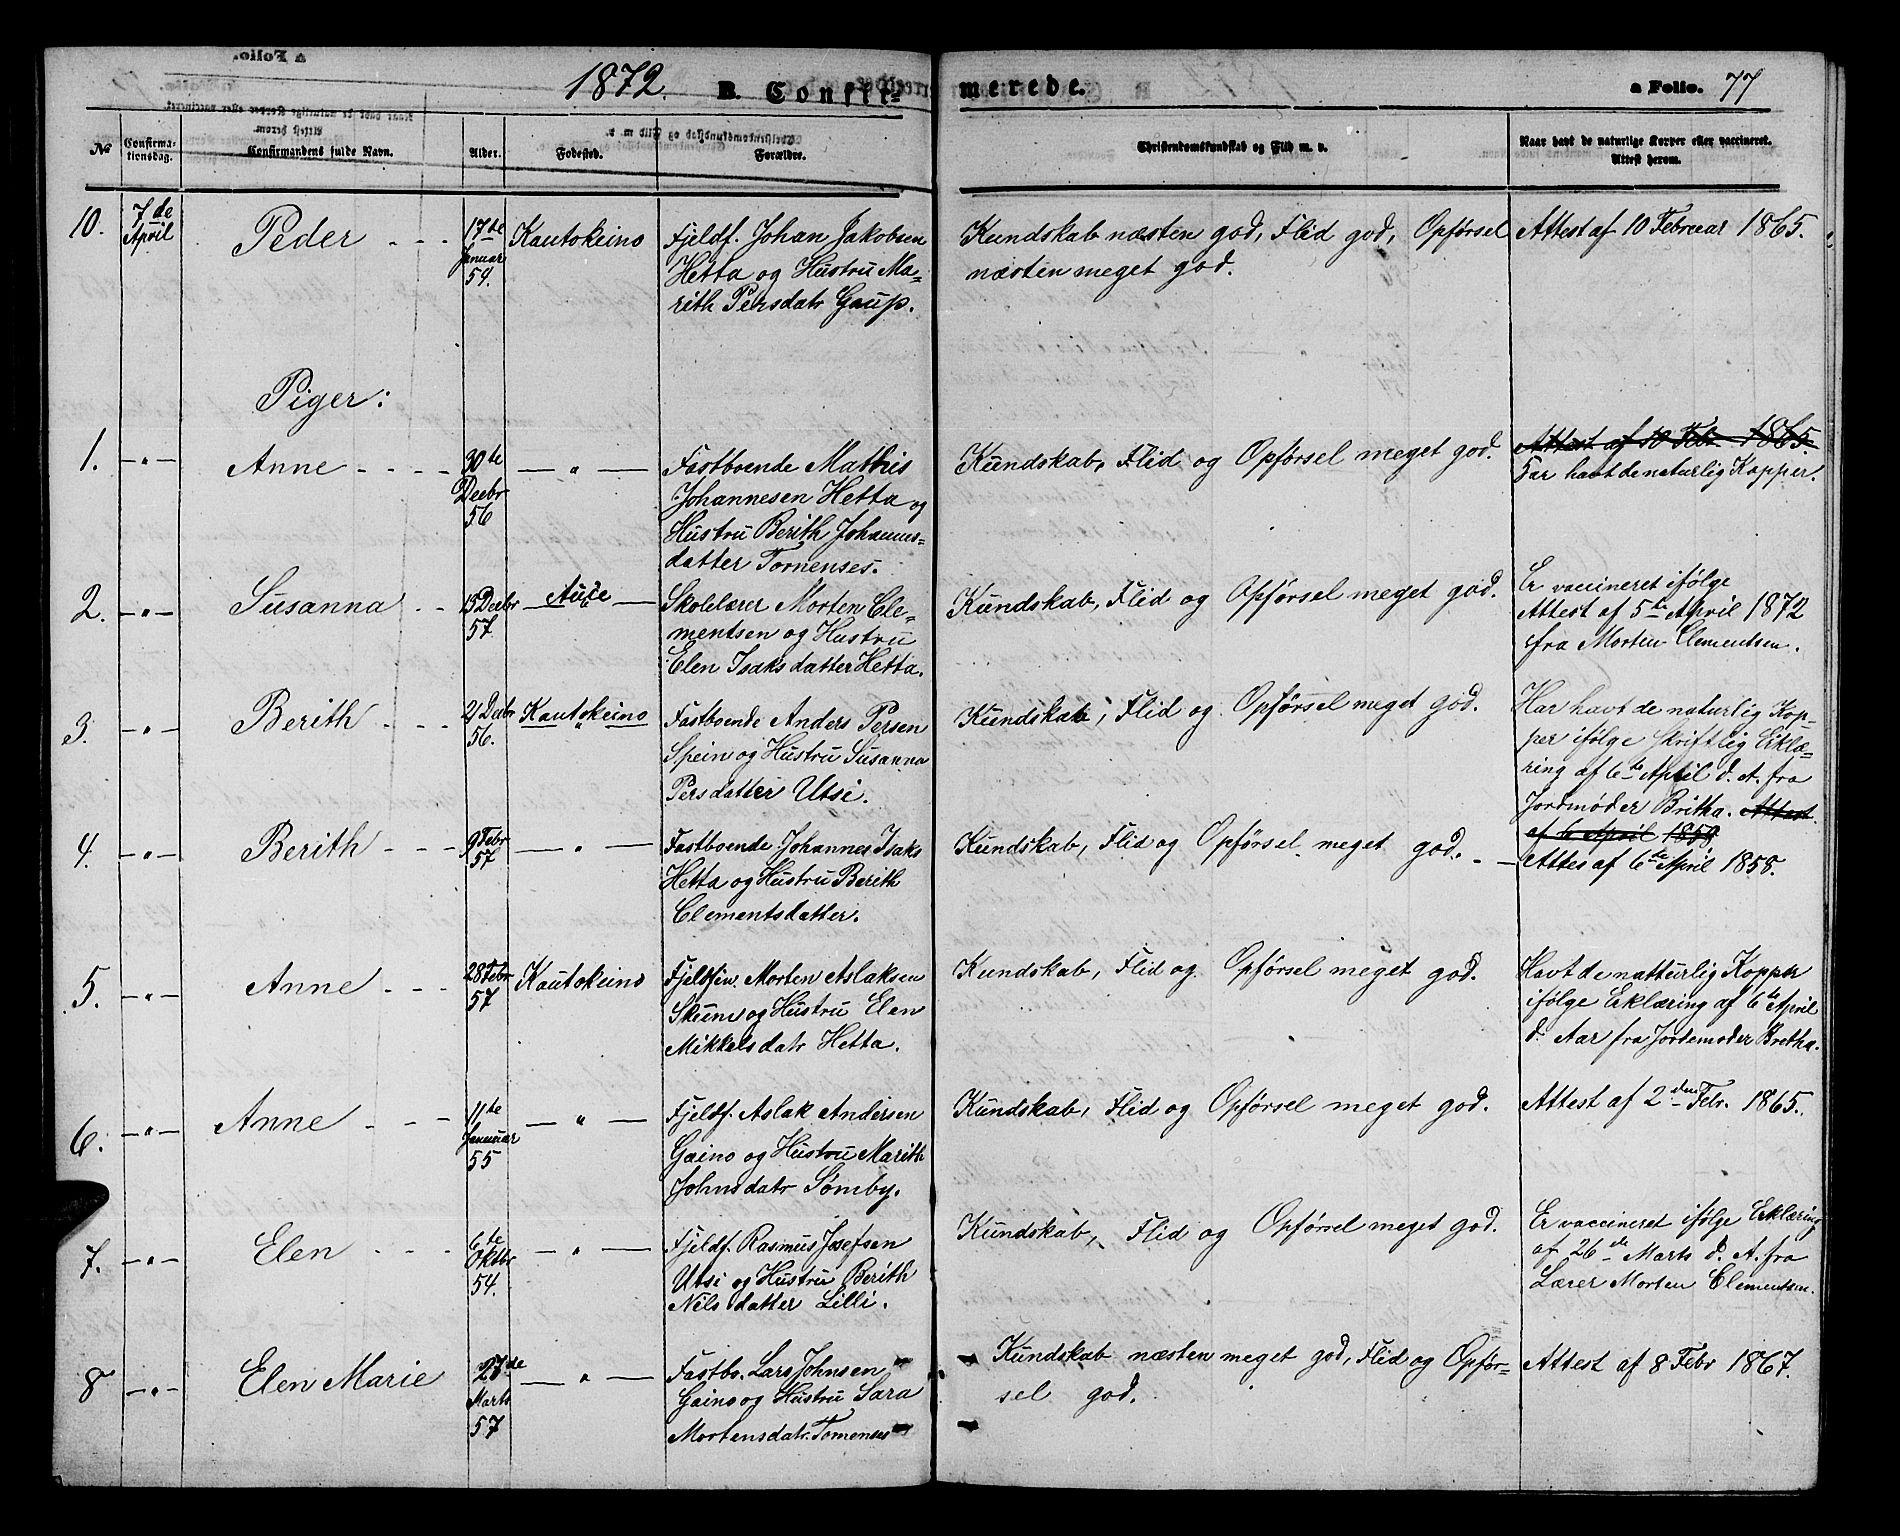 1872. B. Confir- merede. a Folio. 77
No Confirma-tionsdag. Confirmandens fulde Navn. Alder. Fødested. Forældre. Christendomskundskab og Flid m. v. Naar havt de naturlige Kopper eller vaccineret. Attest herom.
10. 7de April Peder - - - 17te Januar 54. Kautokeino Fjeldf. Johan Jakobsen
Hetta og Hustru Ma-
rith Persdatr Gaup.
Kundskab næsten god, Flid god, Opførsel
næsten meget god.
Attest af 10 Februar 1865.
Piger:
1. -"- Anne - - - - 30te Decbr 56 - " - Fastboende Mathis
Johannesen Hetta og
Hustru Berith Johannes-
datter Tornenses.
Kundskab, Flid og Opførsel meget god.
Attest af 10 Feb. 1865.
har havt de naturlig Kopper.
2. -"- Susanna - - 15 Decbr 57 Skolelærer Morten Cle-
mentsen og Hustru
Elen Isaksdatter Hetta.
Kundskab, Flid og Opførsel meget god.
Er vaccineret ifølge
Attest af 5te April 1872
fra Morten Clementsen.
3. -"- Berith - - - 21 Decbr 56. Kautokeino Fastboende Anders Persen
Spein og Hustru Susanna
Persdatter Utsi.
Kundskab, Flid og Opførsel meget god.
Har havt de naturlig Kop-
per ifølge skriftlig Erklæ-
ring af 6te April d. A. fra
Jordmøder Britha. Attest
af 6 April 1859
4. -"- Berith - - - 9 Febr 57 - " - Fastboende Johannes Isaks
Hetta og Hustru Berith
Clementsdatter.
Kundskab, Flid og Opførsel meget god. - -
Attes af 6te April 1858.
5. -"- Anne - - - 28 Febr 57 Kautokeino Fjeldfin. Morten Aslaksen
Skum og Hustru Elen
Mikkelsdatr Hetta.
Kundskab, Flid og Opførsel meget god.
Havt de natturlig Kopper
ifølge Erklæring af 6te April
d. Aar fra Jordemoder Bretha.
6. -"- Anne - - - 11te Januar 55 - " - Fjeldf. Aslak Andersen
Gaino og Hustru Marith
Johnsdatr Sømby.
Kundskab, Flid og Opførsel meget god.
Attest af 2den Febr. 1865.
7. -"- Elen - - - 6te Oktbr 54. - " - Fjeldf. Rasmus Josefsen
Utsi og Hustru Berith
Nilsdatter Lilli.
Kundskab, Flid og Opførsel meget god.
Er vaccineret ifølge Erklæring
af 26de Marts d. A. fra
Lærer Morten Clementsen.
8 -"- Elen Marie 27de Marts 57 - " - Fastbo. Lars Johnsen
Gaino og Hustru Sara
Mortensdatr. Tornenses
Kundskab næsten meget god, Flid og Opfør-
sel god.
Attest af 8 Febr 1867.